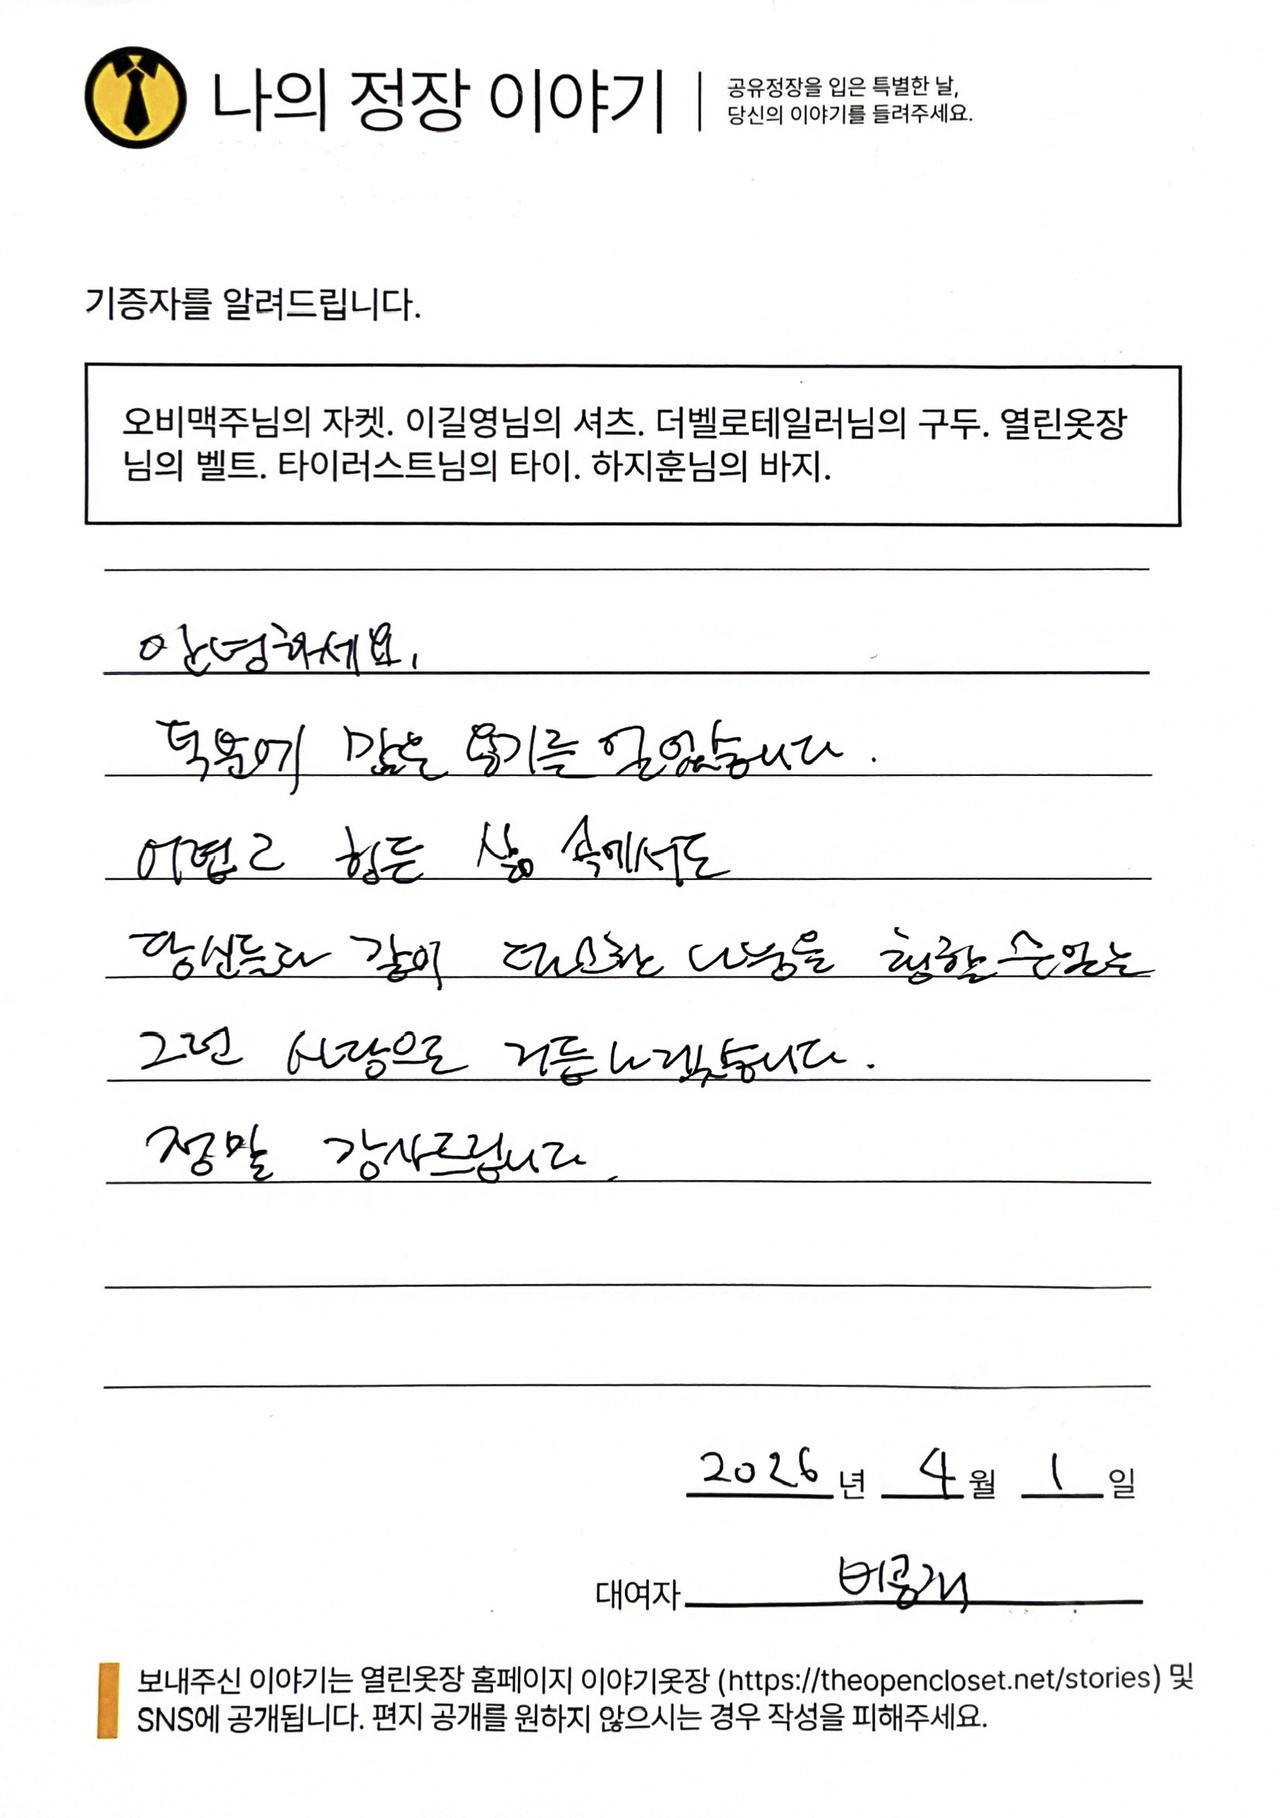 나의 정장 이야기
공유정장을 입은 특별한 날,
당신의 이야기를 들려주세요.
기증자를 알려드립니다.
오비맥주님의 자켓. 이길영님의 셔츠. 더벨로테일러님의 구두. 열린옷장
님의 벨트. 타이러스트님의 타이. 하지훈님의 바지.
안녕하세요,
덕분에 많은 용기를 얻었습니다.
어렵고 힘든 삶 속에서도
당신들과 같이 따뜻한 나눔을 행할 수 있는
그런 사람으로 거듭나겠습니다.
정말 감사드립니다.
2026년 4월 1일
대여자 비공개
보내주신 이야기는 열린옷장 홈페이지 이야기옷장 (https://theopencloset.net/stories) 및
SNS에 공개됩니다. 편지 공개를 원하지 않으시는 경우 작성을 피해주세요.